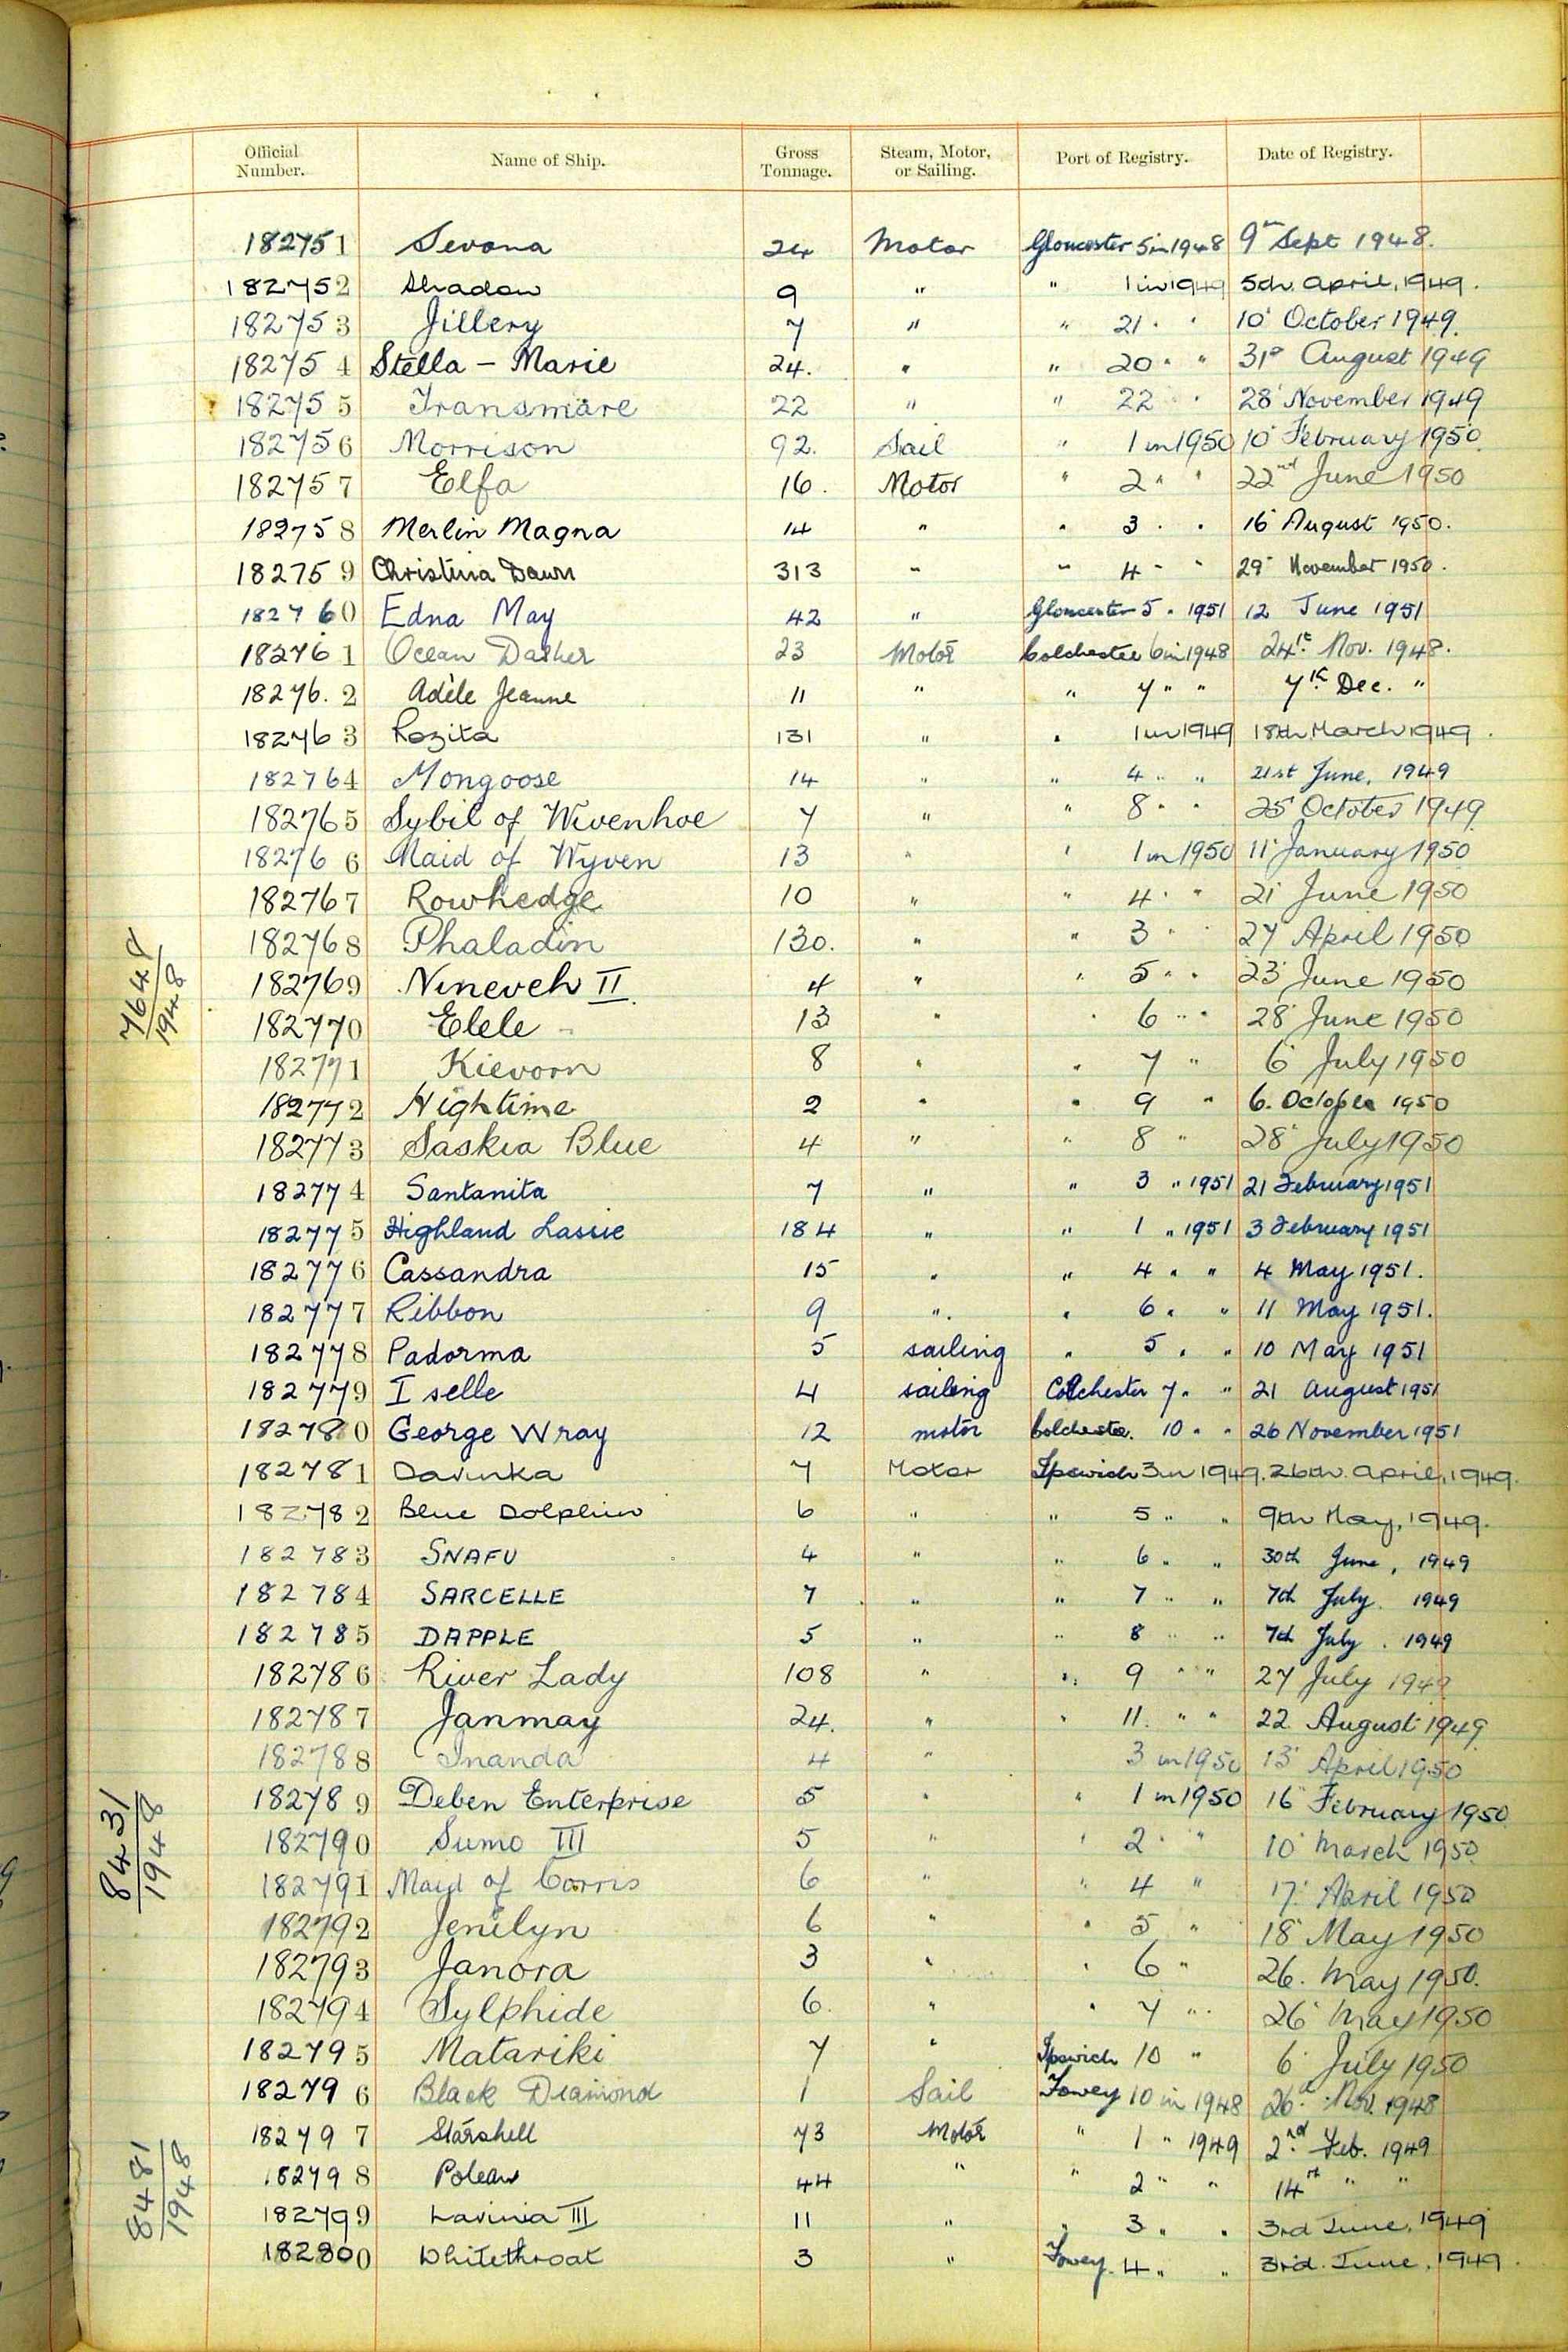 Official Number. Name of Ship. Gross Tonnage. Steam, Motor, or Sailing. Port of Registry. Date of Registry.
182751 Sevona 24 Motor Gloucester 5 in 1948 9th Sept 1948.
182752 Shadow 9 " " 1 in 1949 5th. April, 1949.
182753 Jillery 7 " " 21 " " 10 October 1949.
182754 Stella - Marie 24. " " 20 " " 31st August 1949
182755 Transmare 22 " " 22 " 28 November 1949
182756 Morrison 92. Sail " 1 in 1950 10 February 1950.
182757 Elfa 16. Motor " 2 " " 22nd June 1950
182758 Merlin Magna 14 " " 3 " " 16 August 1950.
182759 Christina Dawn 313 " " 4 " " 29 November 1950.
182760 Edna May 42 " Gloucester 5 " 1951 12 June 1951
182761 Ocean Dasher 23 Motor Colchester 6 in 1948 24th Nov. 1948.
182762 Adèle Jeanne 11 " " 7 " " 7th Dec. "
182763 Rozita 131 " " 1 in 1949 18th March 1949.
182764 Mongoose 14 " " 4 " " 21st June, 1949
182765 Sybil of Wivenhoe 7 " " 8 " " 25 October 1949
182766 Maid of Wyven 13 " " 1 in 1950 11 January 1950
182767 Rowhedge 10 " " 4 " " 21 June 1950
182768 Phaladin 130. " " 3 " " 27 April 1950
7648 1948
182769 Nineveh II 4 " " 5 " " 23 June 1950
182770 Elele 13 " " 6 " " 28 June 1950
182771 Kievorn 8 " " 7 " 6 July 1950
182772 Nightime 2 " " 9 " 6. October 1950
182773 Saskia Blue 4 " " 8 " 28 July 1950
182774 Santanita 7 " " 3 " 1951 21 February 1951
182775 Highland Lassie 184 " " 1 " 1951 3 February 1951
182776 Cassandra 15 " " 4 " " 4 May 1951.
182777 Ribbon 9 " " 6 " " 11 May 1951.
182778 Padorma 5 sailing " 5 " " 10 May 1951
182779 I selle 4 sailing Colchester 7 " " 21 August 1951
182780 George Wray 12 motor Colchester. 10 " " 26 November 1951
182781 Davinka 7 Motor Ipswich 3 in 1949. 26th. April, 1949.
182782 Blue Dolphin 6 " " 5 " " 9th May, 1949.
182783 SNAFU 4 " " 6 " " 30th June, 1949
182784 SARCELLE 7 " " 7 " " 7th July. 1949
182785 DAPPLE 5 " " 8 " " 7th July. 1949
182786 River Lady 108 " " 9 " " 27 July 1949
182787 Janmay 24. " " 11. " " 22 August 1949
182788 Inanda 4 " 3 in 1950 13 April 1950
182789 Deben Enterprise 5 " " 1 in 1950 16 February 1950
8431 1948
182790 Sumo III 5 " " 2 " " 10 March 1950
182791 Mayd of Corris 6 " " 4 " 17 April 1950
182792 Jenilyn 6 " " 5 " 18 May 1950
182793 Janora 3 " " 6 " 26. May 1950.
182794 Sylphide 6. " " 7 " 26 May 1950
182795 Matariki 7 " Ipswich 10 " 6 July 1950
182796 Black Diamond 1 Sail Fowey 10 in 1948 26th Nov. 1948
182797 Starshell 73 Motor " 1 " 1949 2nd Feb. 1949
182798 Polean 44 " " 2 " " 14th " "
8481 1948
182799 Lavinia III 11 " " 3 " " 3rd June, 1949
182800 Whitethroat 3 " Fowey 4 " " 3rd. June, 1949.